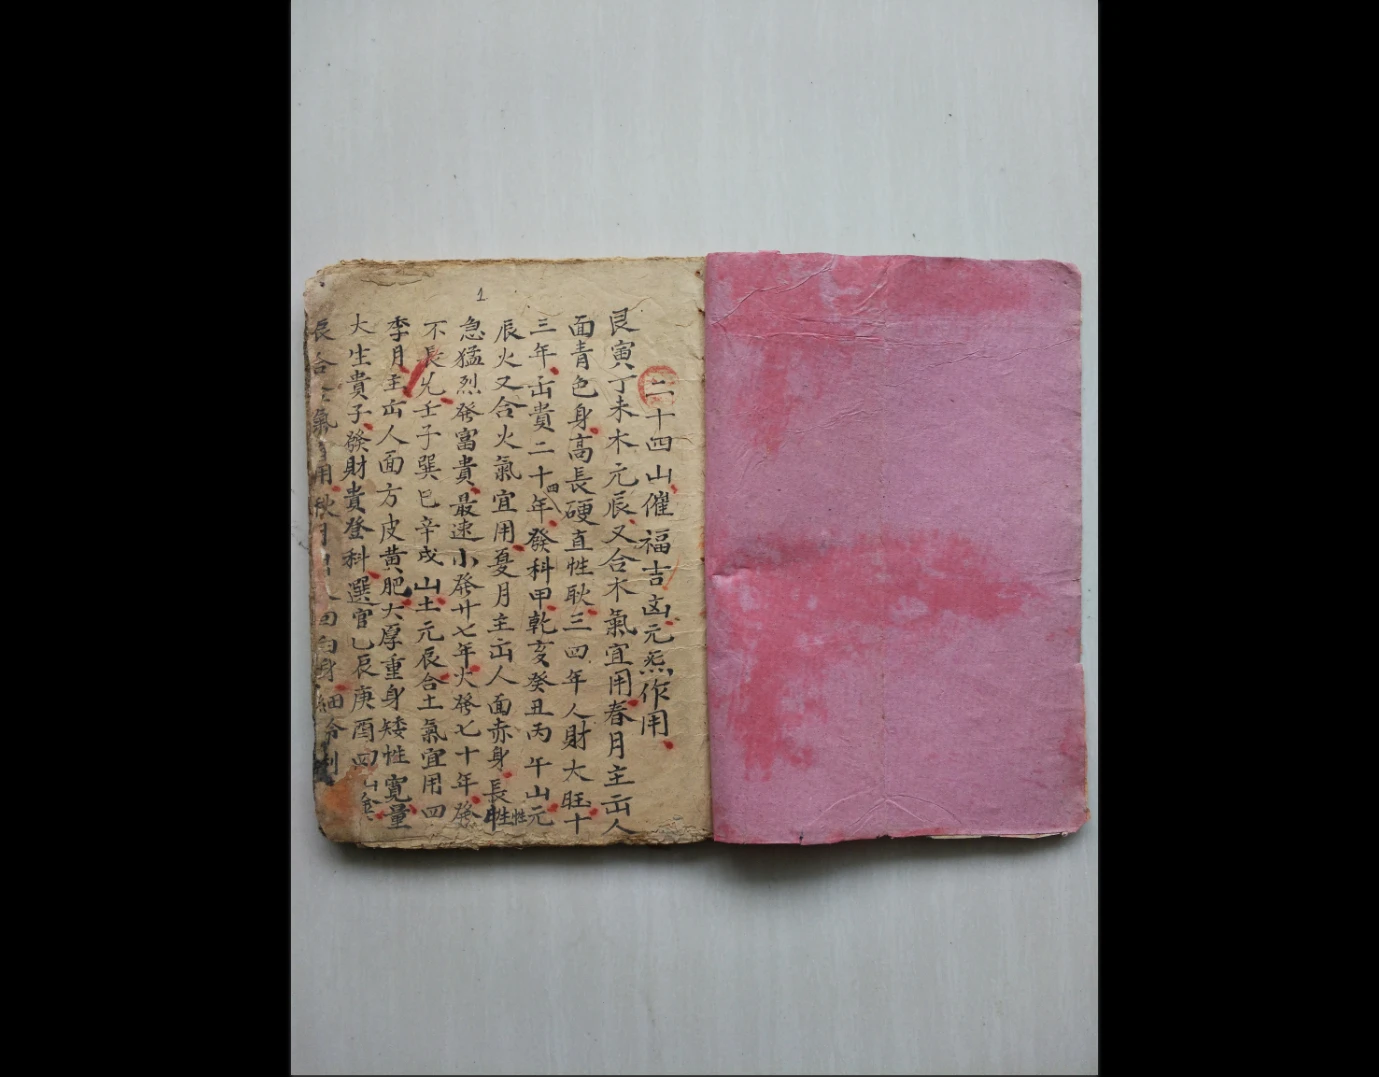 1
二十四山催福吉凶元炁作用
艮寅丁未木元辰又合木氣宜用春月主出人
面青色身高長硬直性耿三四年人財大旺十
三年出貴二十四年發科甲乾亥癸丑丙午山元
辰火又合火氣宜用夏月主出人面赤身長性
急猛烈發富貴最速小發廿七年大發七十年發
不長 壬子巽巳辛戌山土元辰合土氣宜用四
季月主出人面方皮黃肥大厚重身矮性寬量
大生貴子發財貴登科選官乙辰庚酉四山金
辰合金氣宜用秋月 白身細伶利